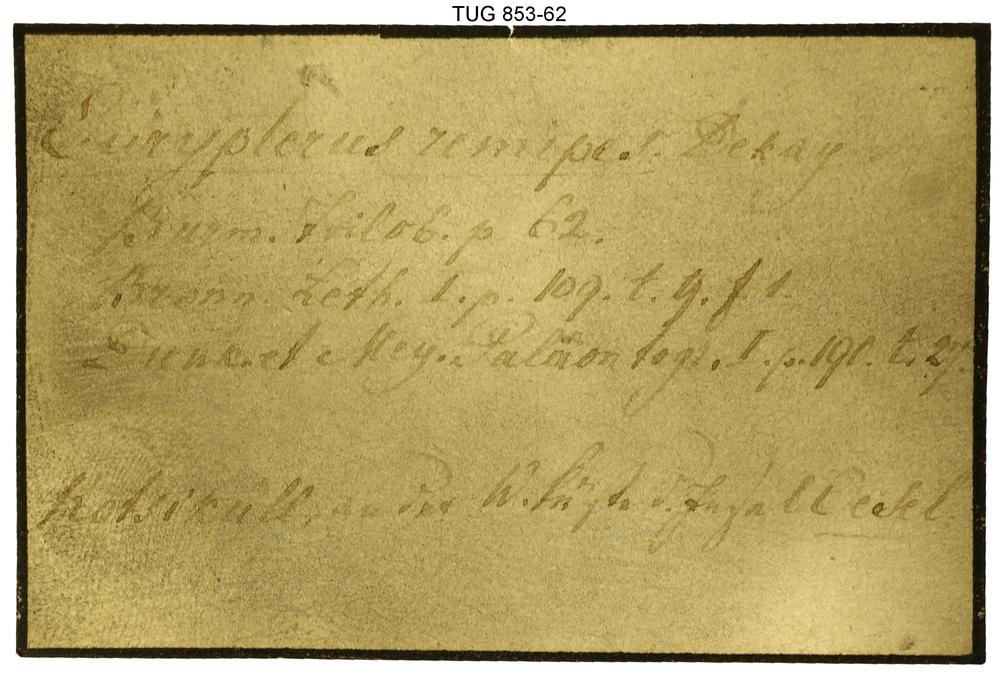 TUG 853-62
Eurypterus remipes. Dekay
Burm. Trilob. p 62.
Bronn. Leth. 1. p. 109. t. 9. f. 1.
Dunk. et Mey. Paläontogr. I. p. 190. t. 27.
Rotsiküll, an der W. Küste d. Insel Oesel